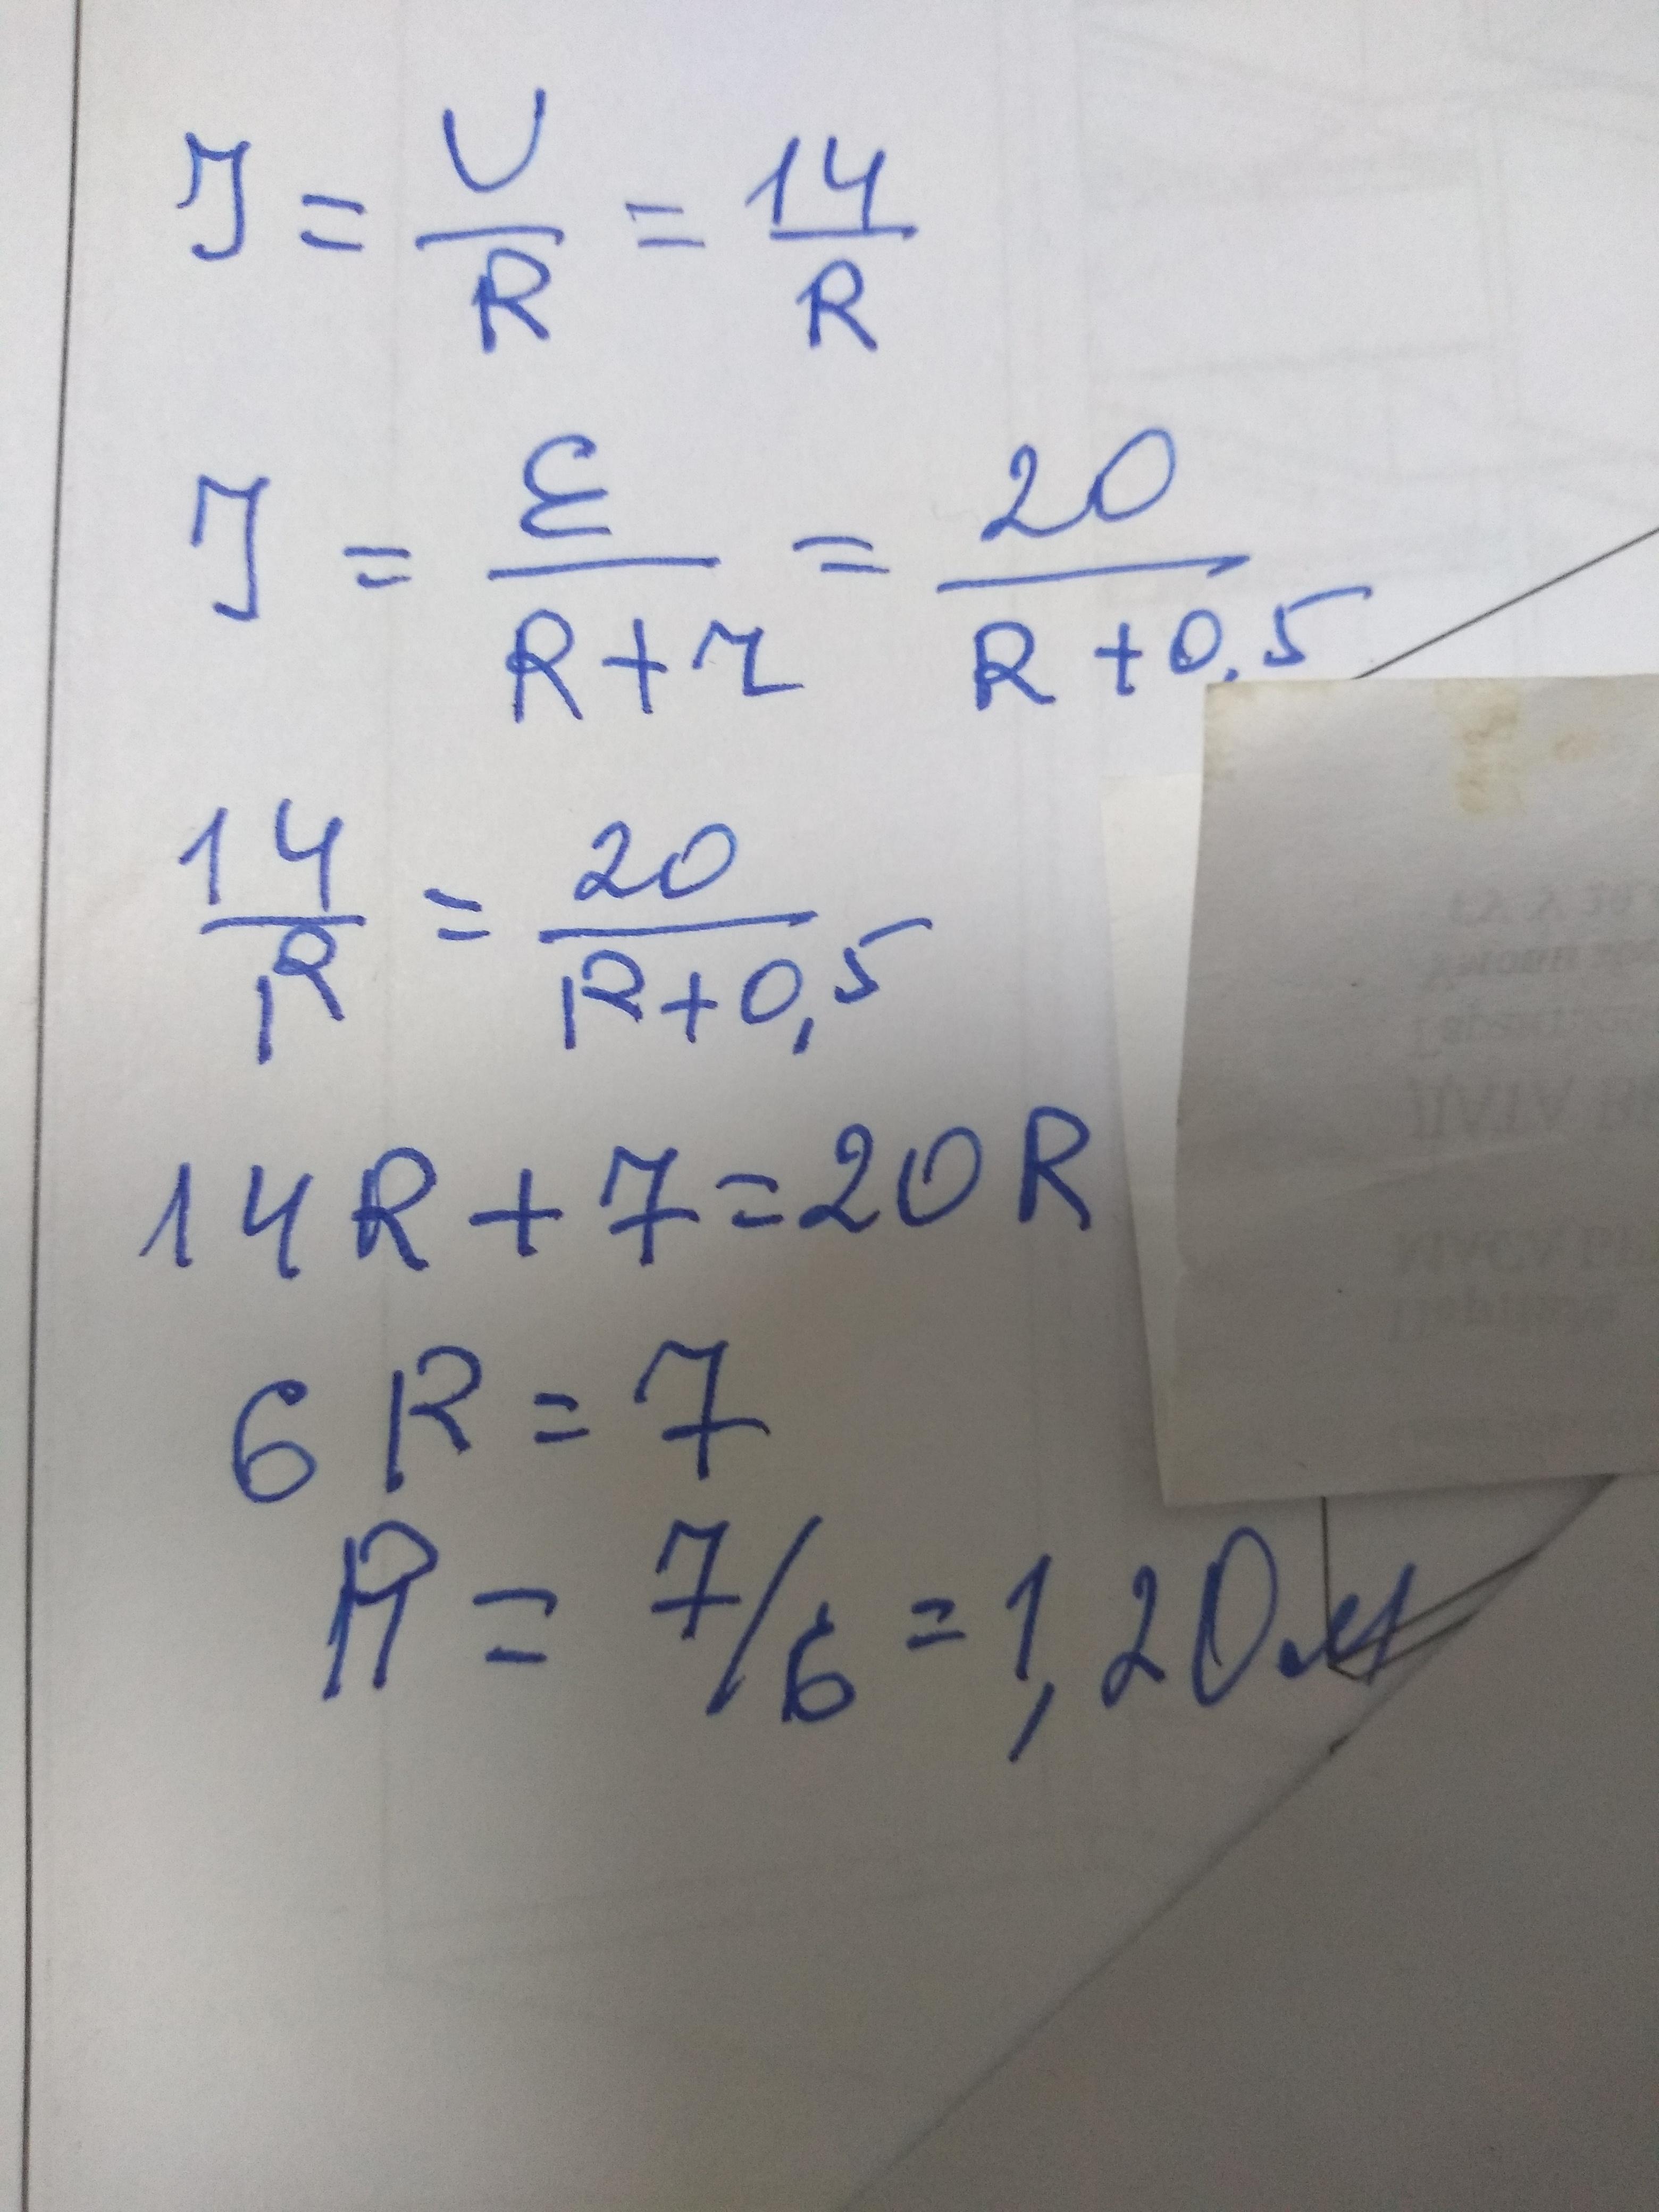 I = U/R = 14/R
I = ε/(R+r) = 20/(R+0,5)
14/R = 20/(R+0,5)
14R+7=20R
6R=7
R = 7/6 = 1,2Ом